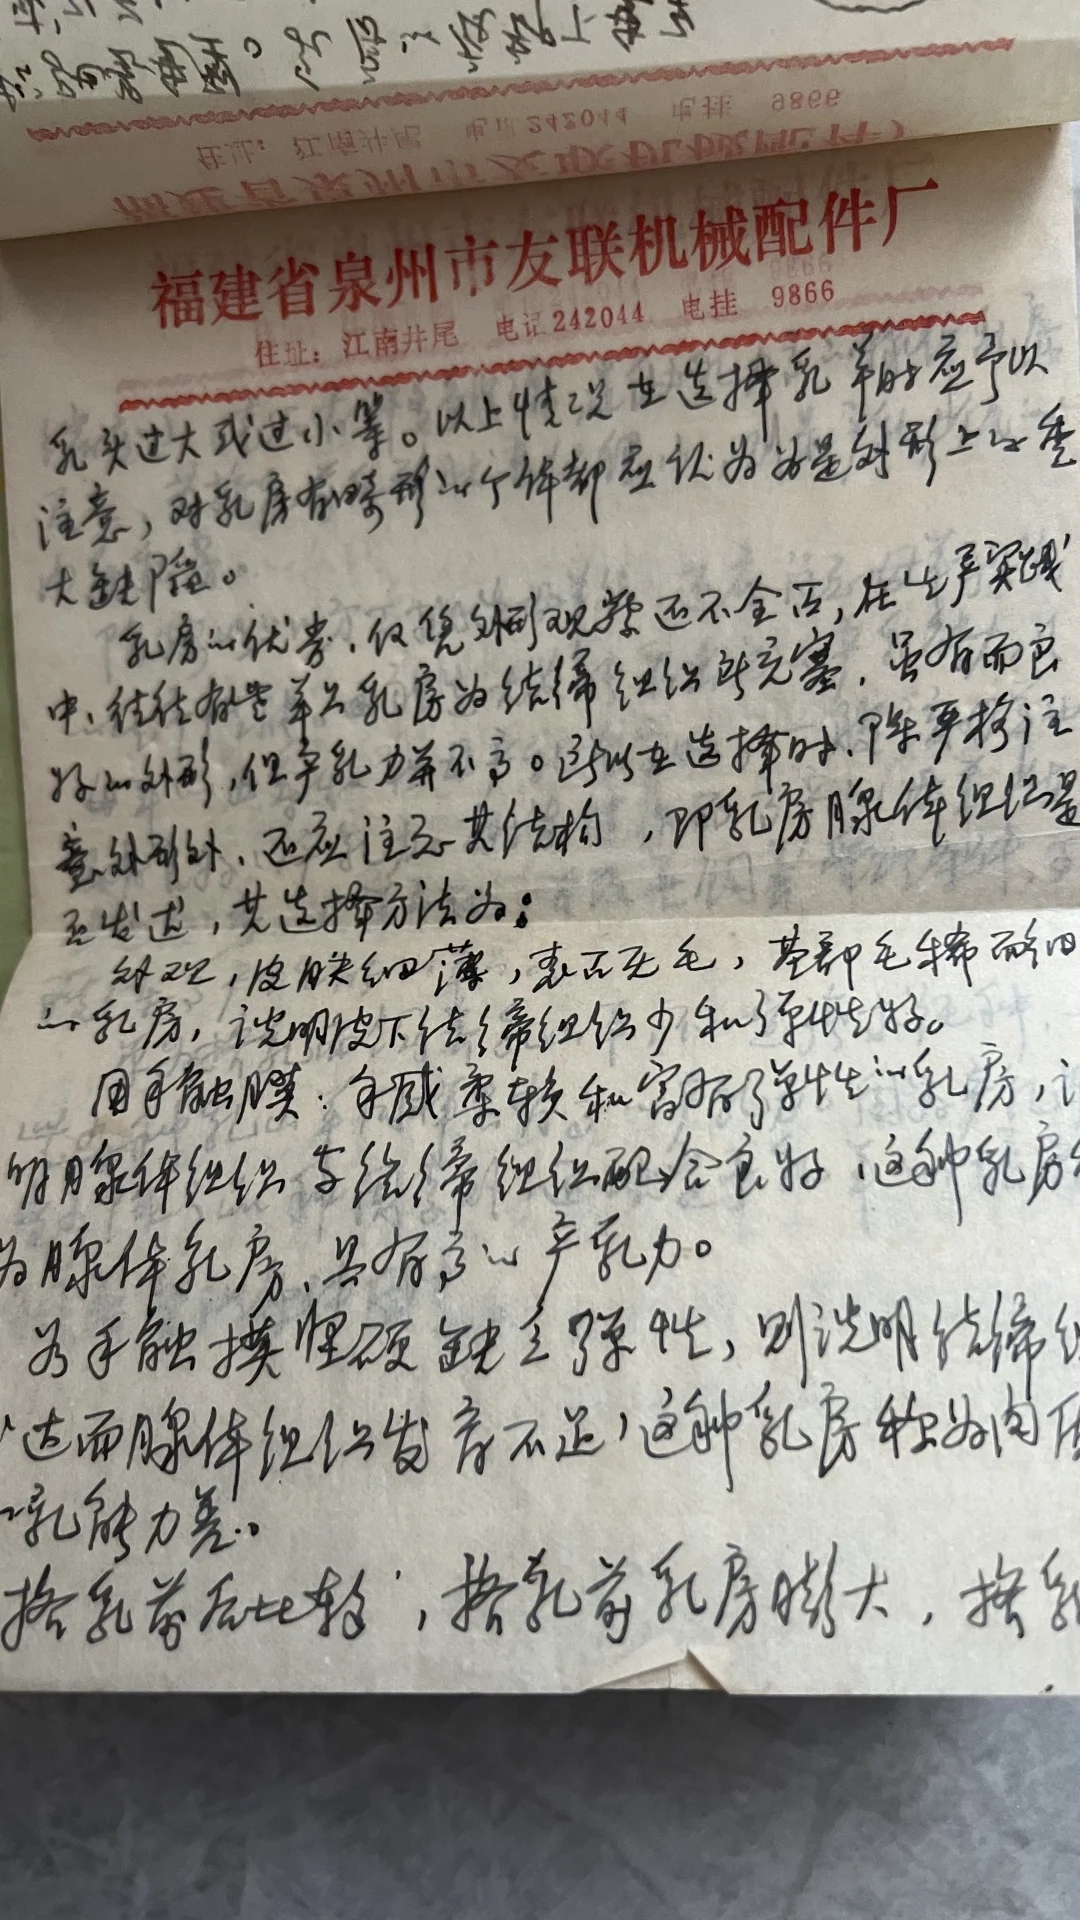 福建省泉州市友联机械配件厂
住址：江南井尾 电记242044 电挂 9866
乳头过大或过小等。以上情况在选择乳羊时应予以
注意，对乳房有畸形的个体都应认为为是外形上的重
大缺陷。
乳房的优劣，仅凭外形观察还不全面，在生产实践
中，往往有些羊只乳房为结缔组织所充塞，虽有而良
好的外形，但产乳力并不高。所以在选择时，除严格注
意外形外，还应注意其结构，即乳房腺体组织是
否发达，其选择方法为：
外观，皮肤细薄，表面无毛，基部毛稀而细
的乳房，说明皮下结缔组织少和弹性好。
用手触膜：手感柔软和富有弹性的乳房，
明腺体组织与结缔组织配合良好，这种乳房
为腺体乳房，具有高的产乳力。
若手触摸坚硬缺乏弹性，则说明结缔
达而腺体组织发育不足，这种乳房称为肉
乳能力差。
挤乳前后比较，挤乳前乳房膨大，挤乳